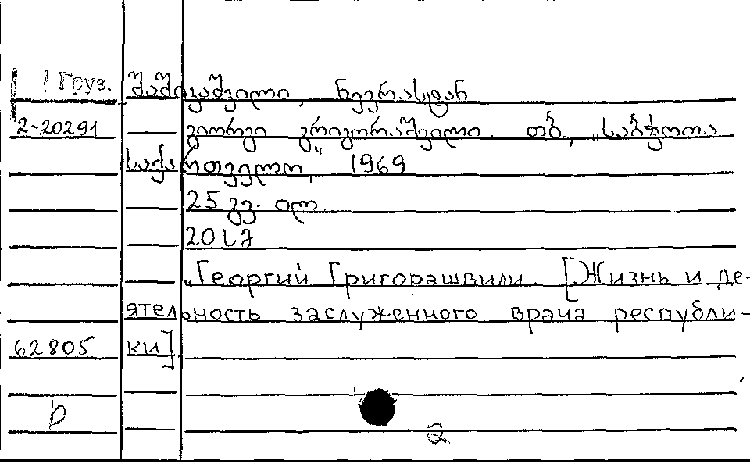 Груз.
2-20291 — გიორგი გრიგორაშვილი. თბ., „საბჭოთა
საქართველო," 1969
25 გვ. ილ.
20 სმ
„Георгий Григорашвили. [Жизнь и де-
ятельность заслуженного врача республи-
62805 ки]
2